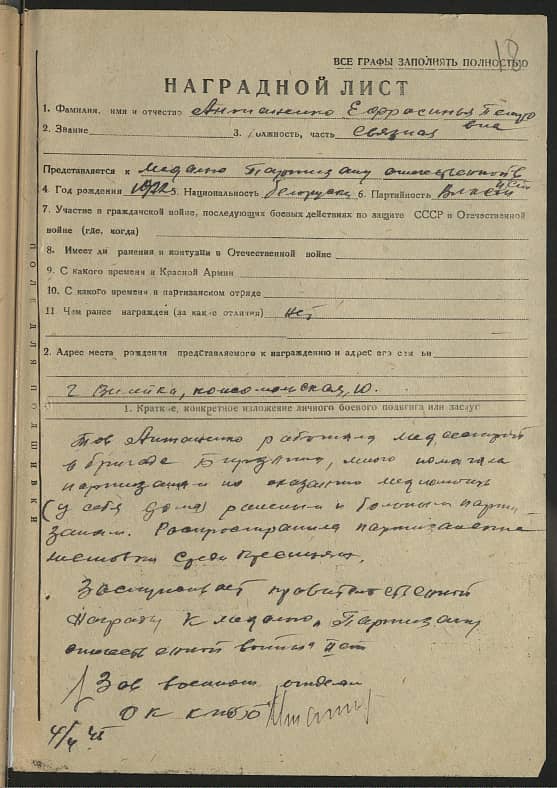 18
ВСЕ ГРАФЫ ЗАПОЛНЯТЬ ПОЛНОСТЬЮ
НАГРАДНОЙ ЛИСТ
1. Фамилия, имя и отчество Антоненко Ефросинья Петро
вна
2. Звание 3. Должность, часть связная
Представляется к медалью Партизану отечественной
4. Год рождения 1922 5. Национальность белоруска 6. Партийность
7. Участие в гражданской войне, последующих боевых действиях по защите СССР и Отечественной
войне (где, когда)
8. Имеет ли ранения и контузии в Отечественной войне
9. С какого времени в Красной Армии
10. С какого времени в партизанском отряде
11. Чем ранее награжден (за какие отличия) нет
2. Адрес места рождения представляемого к награждению и адрес его семьи
г Вилейка, комсомольская, 10.
1. Краткое, конкретное изложение личного боевого подвига или заслуг
тов Антоненко работала медсестрой
в бригаде много помогала
партизанам по оказанию медпомощи
(у себя дома) раненым и больным парти-
занам. Распространяла партизанские
листовки среди
Заслуживает правительственной
Награды к медалью, Партизану
отечественной войны II ст
Зав военным отделом
ОК КПбБ
4/V 45
ПОЛЕ ДЛЯ ПОДШИВКИ